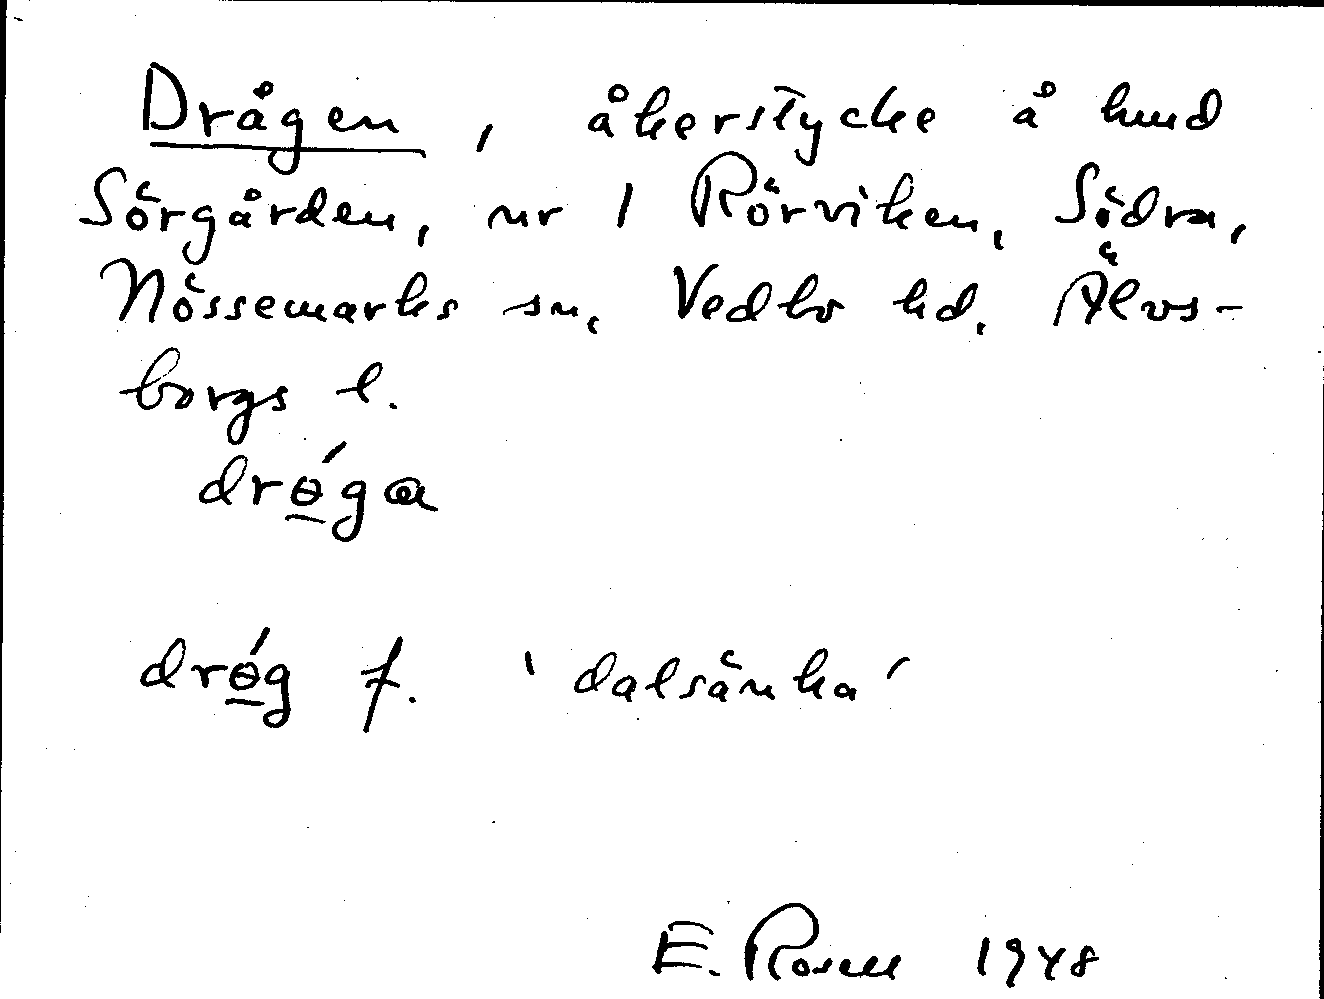 Drågen, åkerstycke å hmd
Sörgården, nr 1 Rörviken, Södra,
Nössemarks sn, Vedbo hd, Älvs-
borgs l.
drɵ̲́ga
drɵ̲́g f. 'dalsänka'
E. Rosell 1948